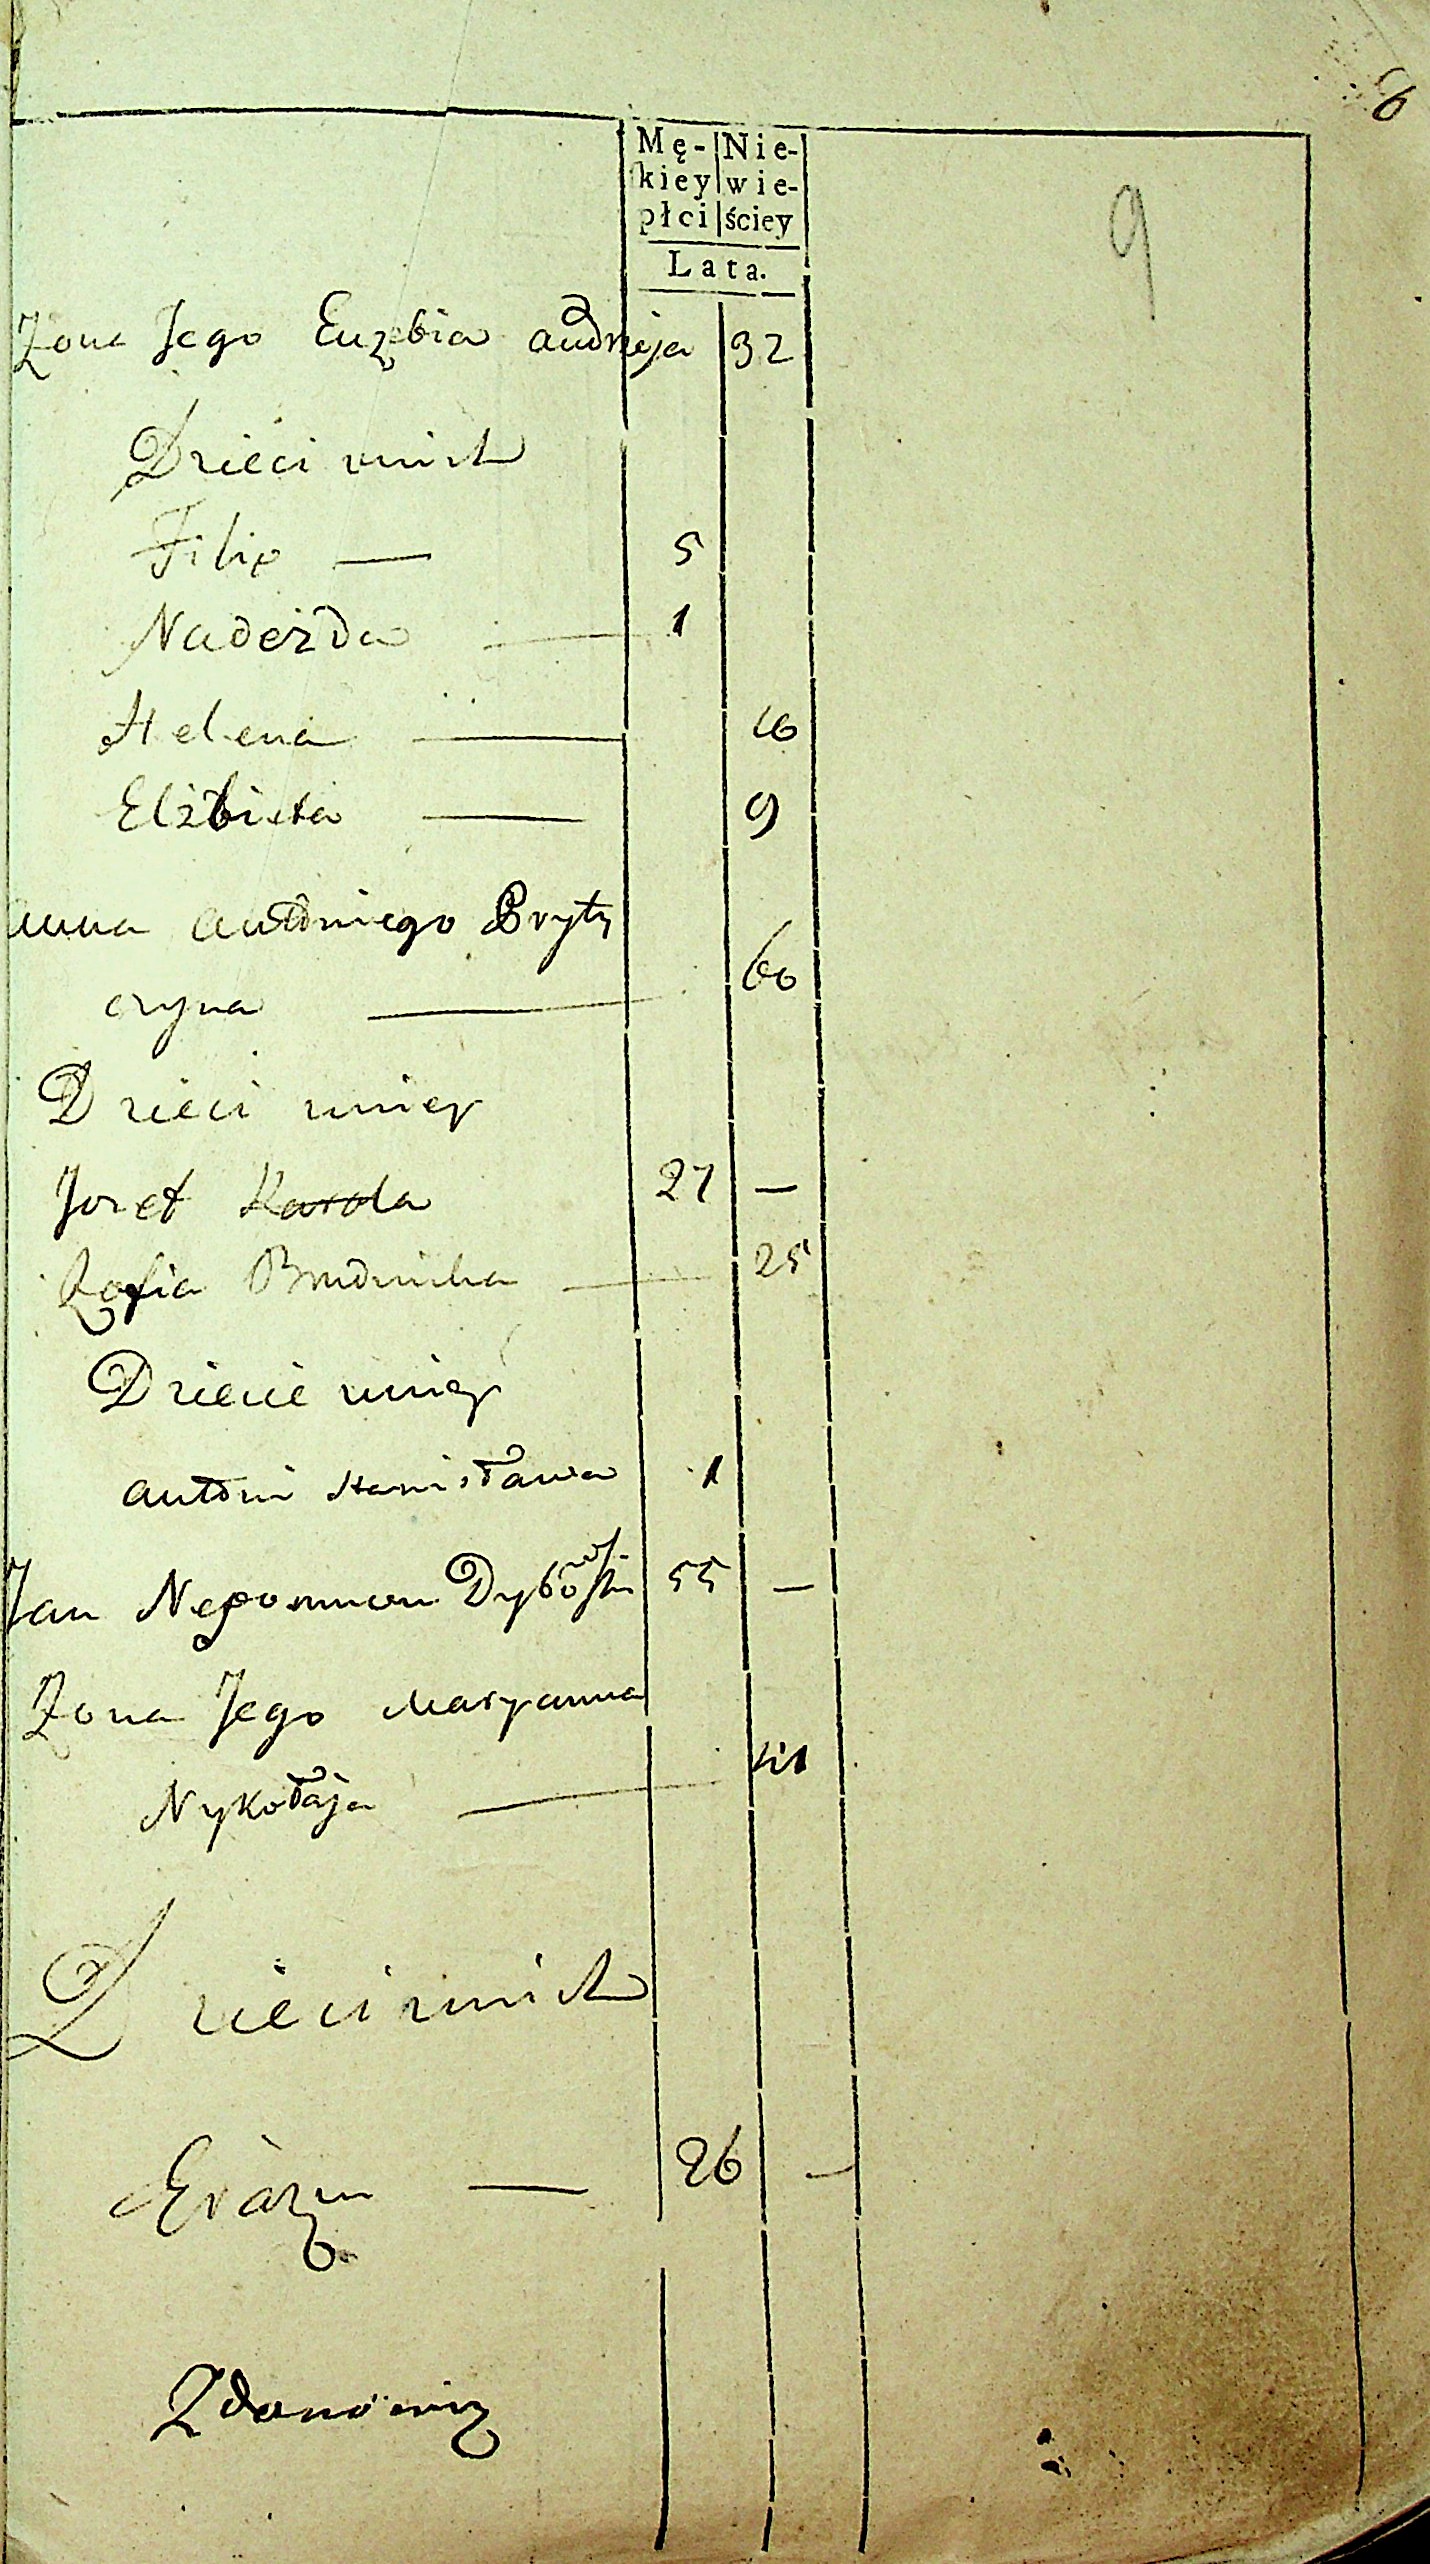 6
9
Mę- Nie-
kiey wie-
płci ściey
Lata.
Żona Jego Euzebia Andrzeja 32
Dzieci znich
Filip — 5
Nadeżda — 1
Helena — 16
Elżbieta — 9
Anna Antoniego Pryty
czyna — 60
Dzieci zniey
Jozef Karola 27 —
Zofia — 25
Dziecie zniey
Antoni Stanisława 1
Jan Nepomucen Dybowski 55 —
Żona Jego Maryanna
Nykołaja — 41
Dzieci znich
Erazm — 26 —
Zdanowicz